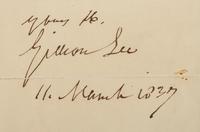 yours &c.
Gideon Lee
11. March 1837